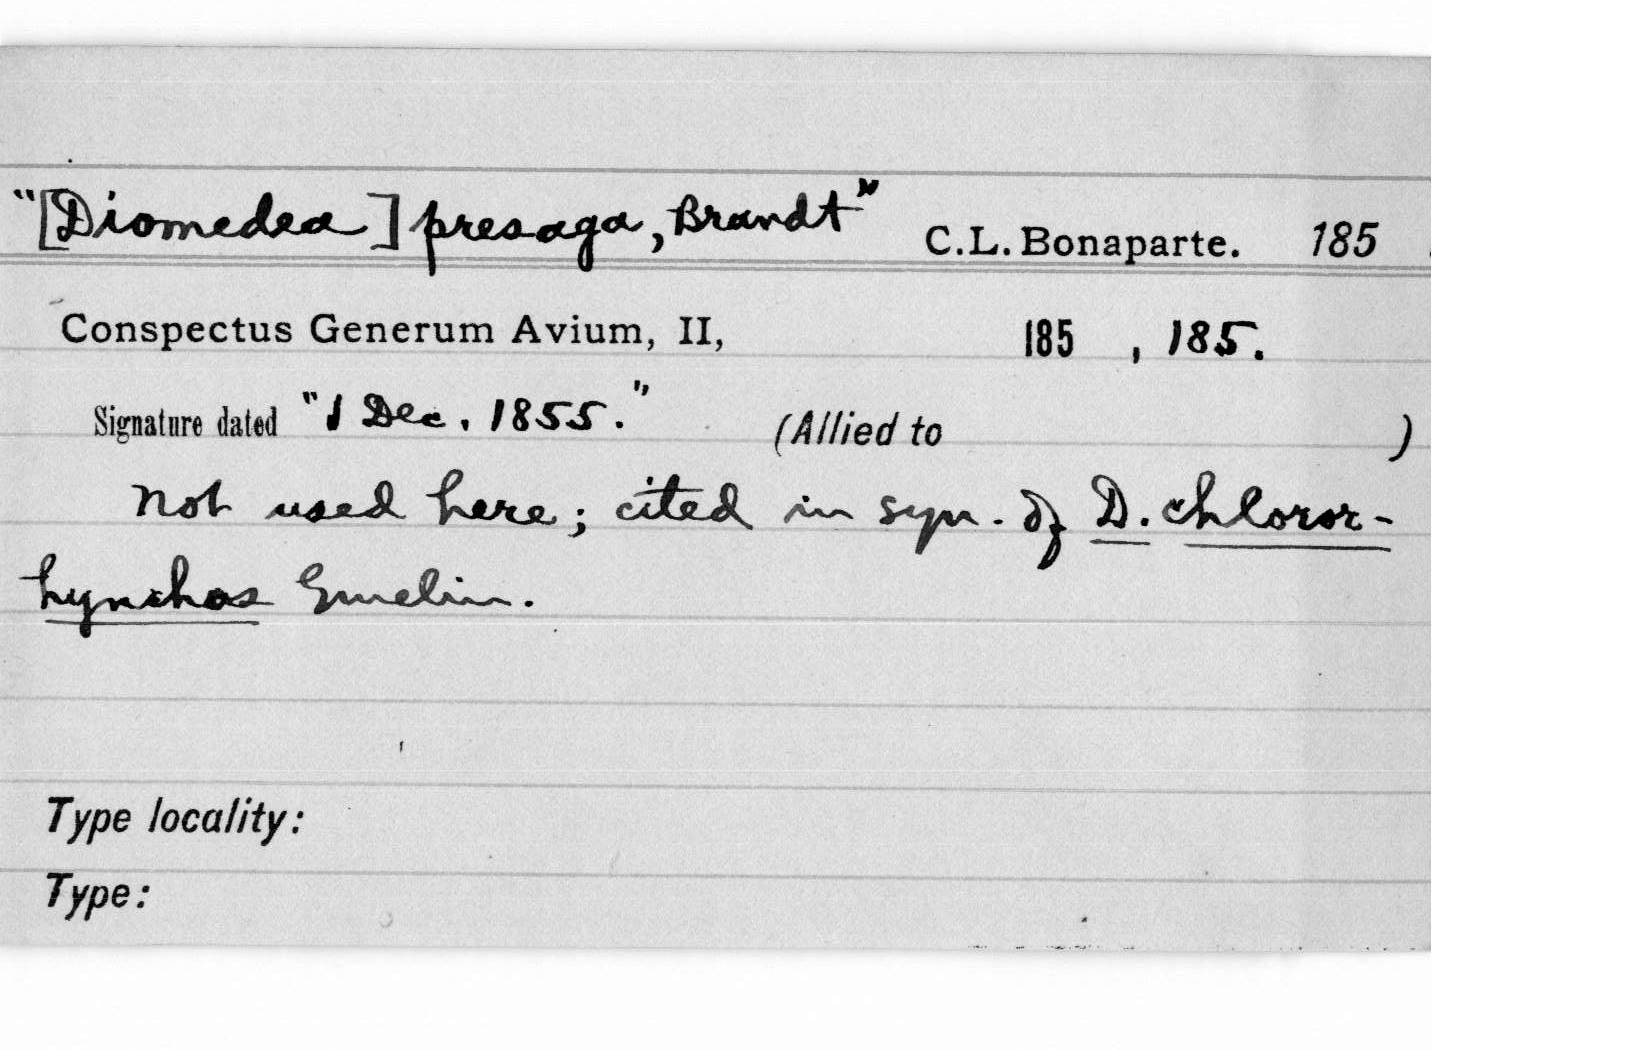 "[Diomedea] presaga, Brandt" C.L. Bonaparte. 185 .
Conspectus Generum Avium, II, 185 , 185.
Signature dated "1 Dec. 1855." (Allied to )
Not used here; cited in syn. of D. chloror-
hynchos Gmelin.
Type locality:
Type: